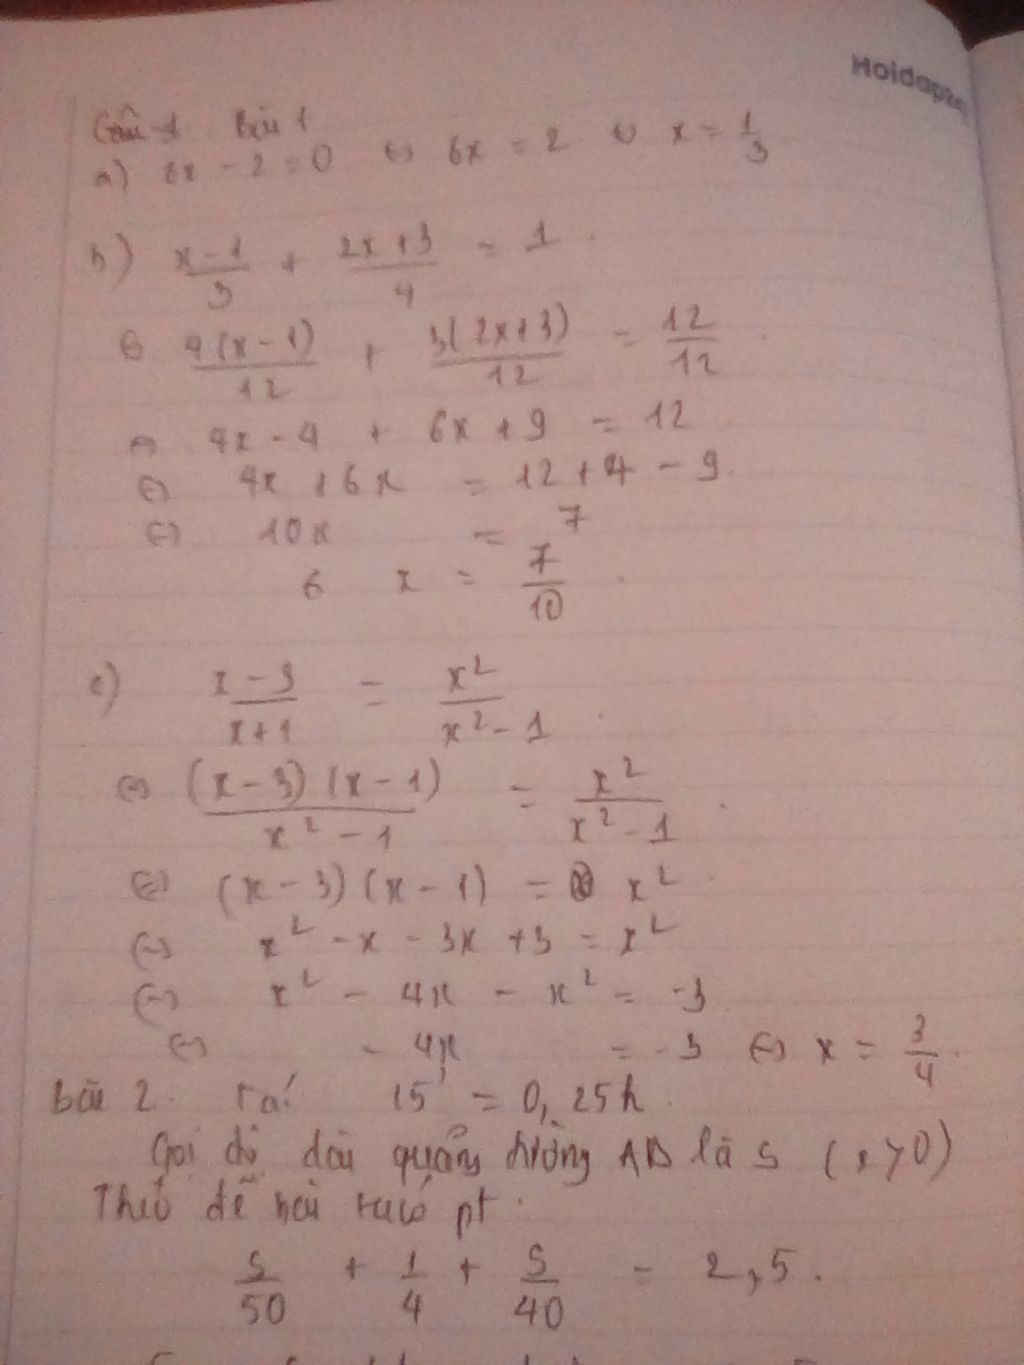 Hoidap
Câu 1 Bài 1
a) 6x - 2 = 0 ⇔ 6x = 2 ⇔ x = 1/3
b) (x-1)/3 + (2x+3)/4 = 1
⇔ 4(x-1)/12 + 3(2x+3)/12 = 12/12
⇔ 4x - 4 + 6x + 9 = 12
⇔ 4x + 6x = 12 + 4 - 9
⇔ 10x = 7
⇔ x = 7/10
c) (x-3)/(x+1) = x²/(x²-1)
⇔ (x-3)(x-1)/(x²-1) = x²/(x²-1)
⇔ (x-3)(x-1) = x²
⇔ x² - x - 3x + 3 = x²
⇔ x² - 4x - x² = -3
⇔ - 4x = -3 ⇔ x = 3/4.
Bài 2. Ta có 15' = 0,25h
Gọi độ dài quãng đường AB là S (s>0)
Theo đề bài ta có pt:
S/50 + 1/4 + S/40 = 2,5.